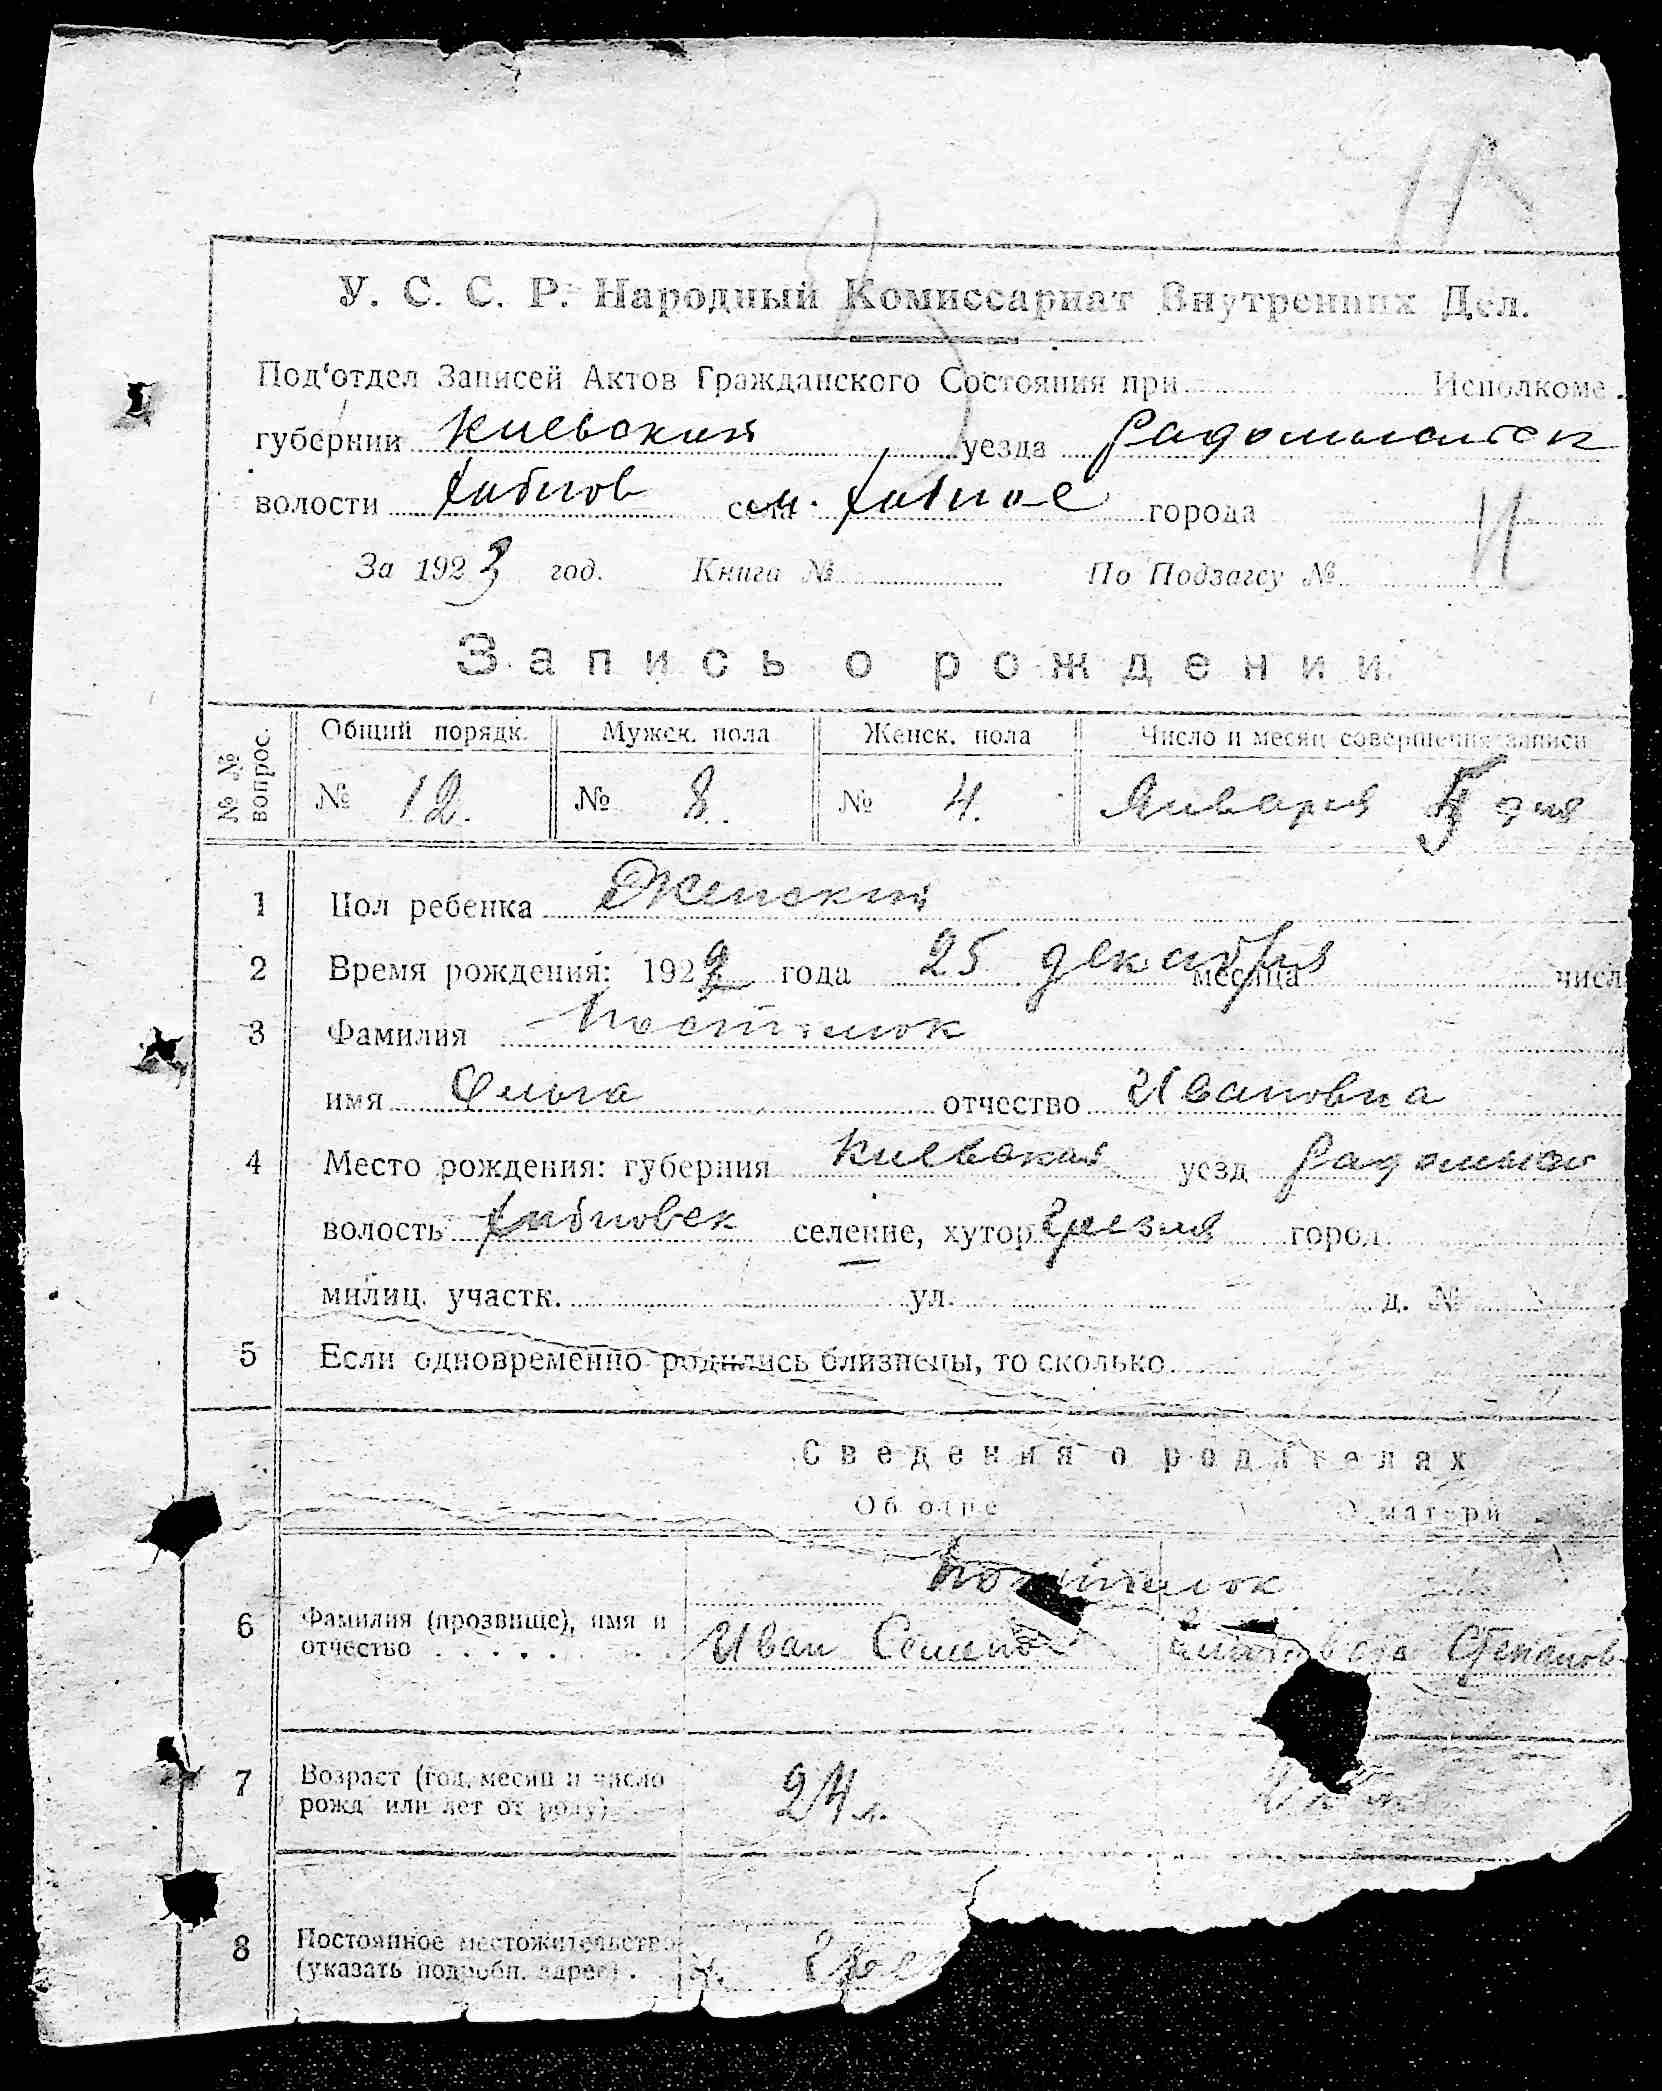 У. С. С. Р. Народный Комиссариат Внутренних Дел.
Под'отдел Записей Актов Гражданского Состояния при Исполкоме
губернии Киевский уезда Радомысльск
волости Хабнов села м. Хабное города
За 1923 год. Книга № По Подзагсу №
Запись о рождении.
№ № вопрос. Общий порядк. Мужск. пола Женск. пола Число и месяц совершения записи
№ 12. № 8. № 4. Января 5 дня
1 Пол ребенка Женский
2 Время рождения: 1922 года 25 декабря месяца числ
3 Фамилия
имя Ольга отчество Ивановна
4 Место рождения: губерния Киевская уезд
волость Хабновск селение, хутор Грезля город
милиц. участк. ул. д. №
5 Если одновременно родились близнецы, то сколько
Сведения о родителях
Об отце О матери
6 Фамилия (прозвище), имя и отчество
Иван Семено Степанов
7 Возраст (год, месяц и число рожд или лет от роду) 24 л.
8 Постоянное местожительство (указать подробн. адрес)